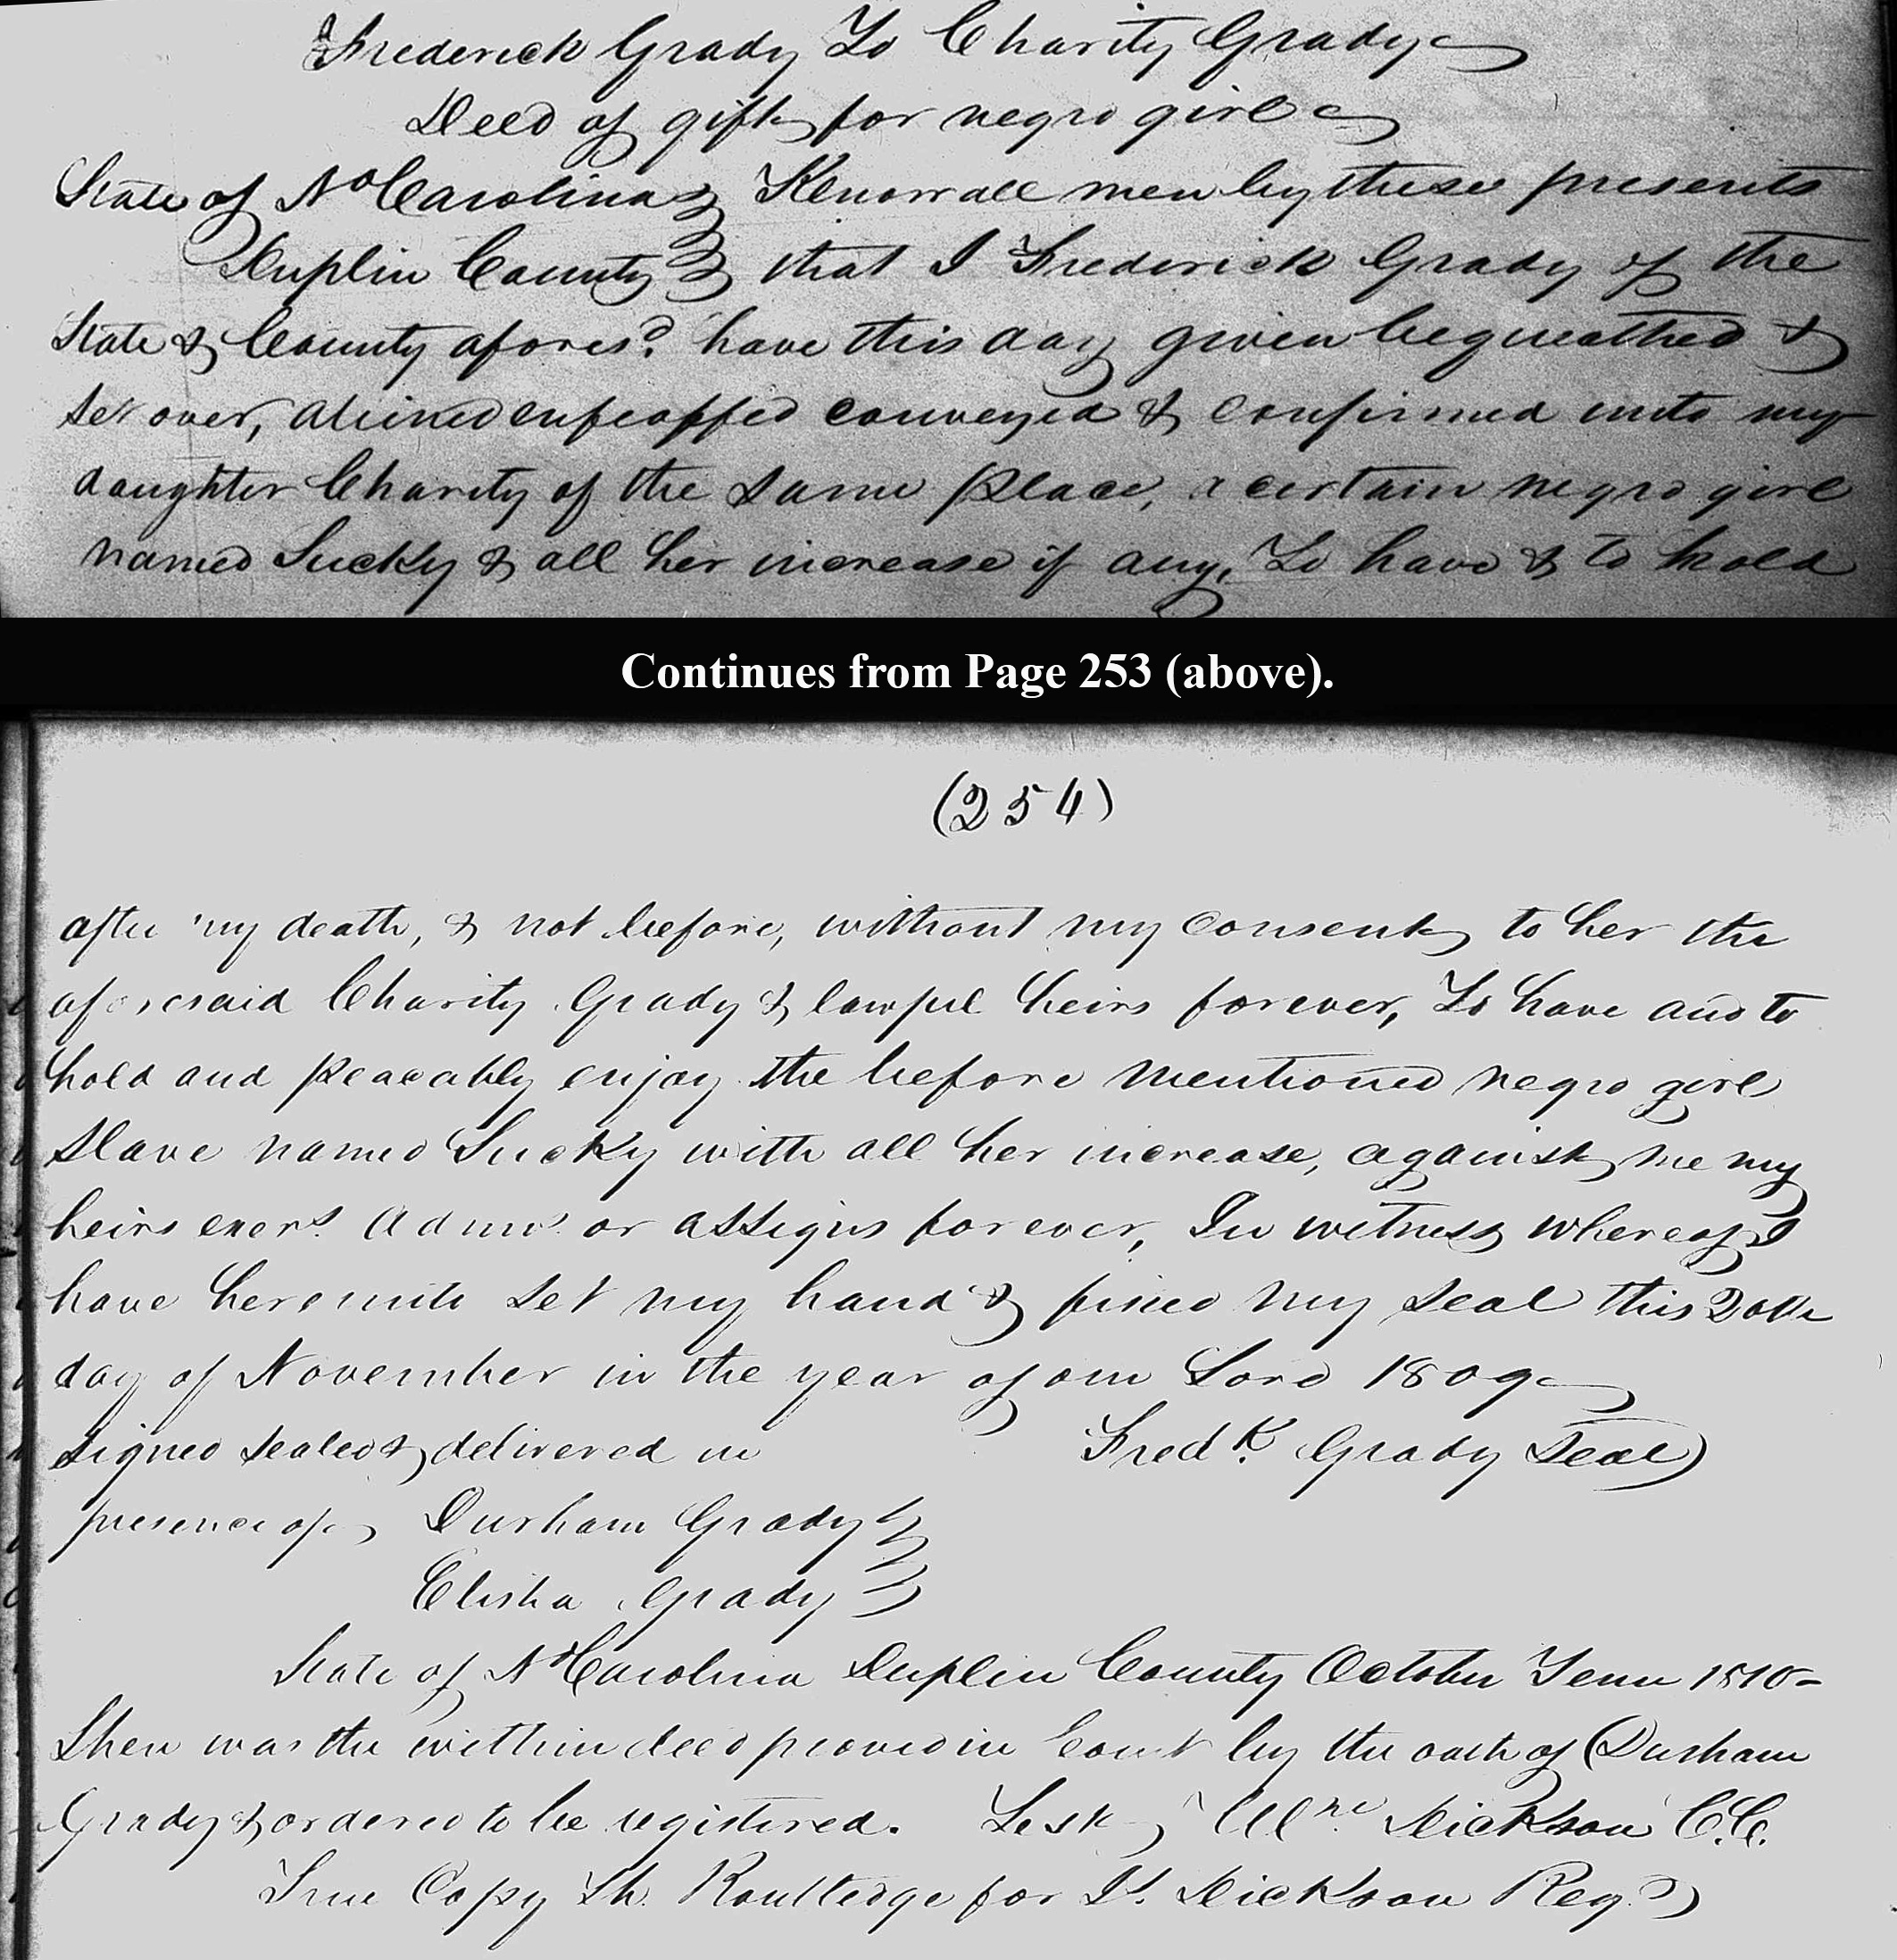 Frederick Grady To Charity Grady
Deed of gift for negro girl
State of No Carolina } Know all men by these presents
Duplin County } that I Frederick Grady of the
State & County aforesd. have this day given bequeathed &
set over, aliened enfeoffed conveyed & confirmed unto my
daughter Charity of the same place, a certain negro girl
named Sucky & all her increase if any, To have & to hold
Continues from Page 253 (above).
(254)
after my death, & not before, without my consent to her the
aforesaid Charity Grady & lawful heirs forever, To have and to
hold and peaceably enjoy the before mentioned negro girl
slave named Sucky with all her increase, against me my
heirs exers. admrs. or assigns forever, In witness whereof I
have hereunto set my hand & fixed my seal this 20th
day of November in the year of our Lord 1809
Signed sealed & delivered in Fredk. Grady Seal)
presence of Durham Grady }
Elisha Grady }
State of No Carolina Duplin County October Term 1810-
Then was the within deed proved in Court by the oath of Durham
Grady & ordered to be registered. Test Wm. Dickson C.C.
True Copy Th. Routledge for Dickson Reg.